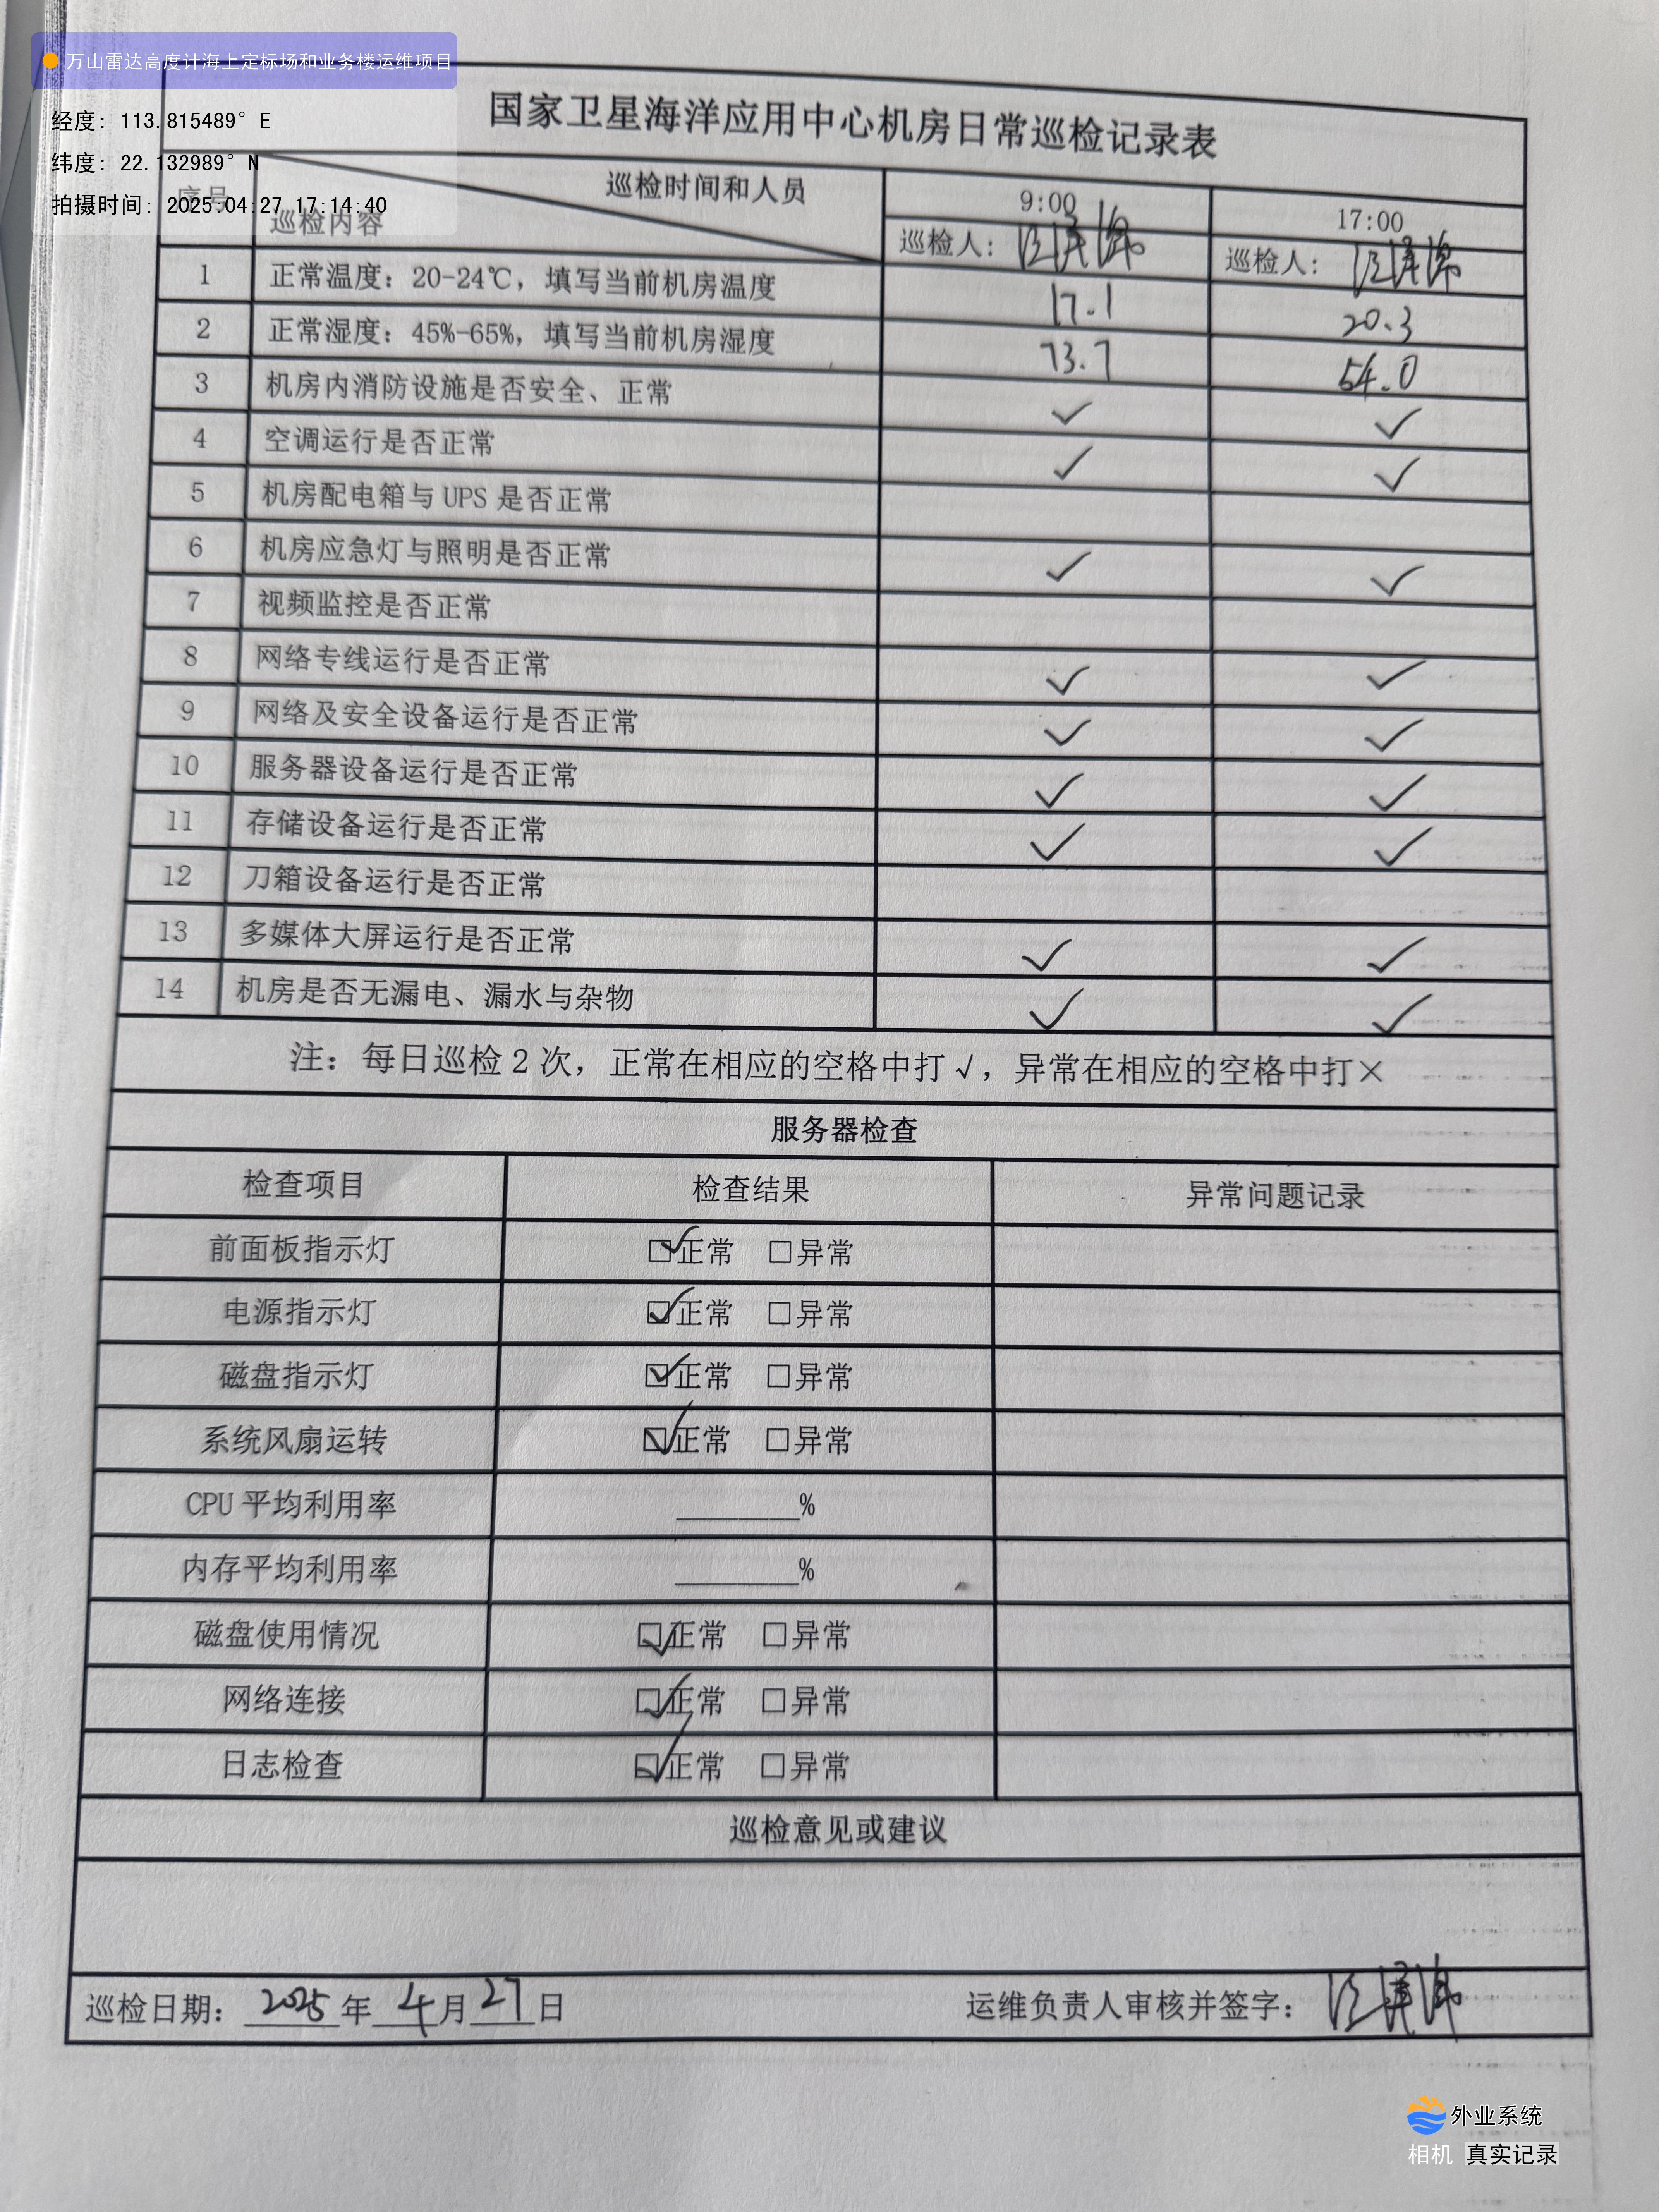 万山雷达高度计海上定标场和业务楼运维项目
经度: 113.815489° E
纬度: 22.132989° N
拍摄时间: 2025:04:27 17:14:40
国家卫星海洋应用中心机房日常巡检记录表
序号 巡检时间和人员 巡检内容 9:00 17:00
巡检人: 巡检人:
1 正常温度: 20-24℃, 填写当前机房温度 17.1 20.3
2 正常湿度: 45%-65%, 填写当前机房湿度 73.7 54.0
3 机房内消防设施是否安全、正常 ✓ ✓
4 空调运行是否正常 ✓ ✓
5 机房配电箱与 UPS 是否正常
6 机房应急灯与照明是否正常 ✓ ✓
7 视频监控是否正常
8 网络专线运行是否正常 ✓ ✓
9 网络及安全设备运行是否正常 ✓ ✓
10 服务器设备运行是否正常 ✓ ✓
11 存储设备运行是否正常 ✓ ✓
12 刀箱设备运行是否正常
13 多媒体大屏运行是否正常 ✓ ✓
14 机房是否无漏电、漏水与杂物 ✓ ✓
注: 每日巡检 2 次, 正常在相应的空格中打 √, 异常在相应的空格中打×
服务器检查
检查项目 检查结果 异常问题记录
前面板指示灯 ☑正常 □异常
电源指示灯 ☑正常 □异常
磁盘指示灯 ☑正常 □异常
系统风扇运转 ☑正常 □异常
CPU 平均利用率 ________%
内存平均利用率 ________%
磁盘使用情况 ☑正常 □异常
网络连接 ☑正常 □异常
日志检查 ☑正常 □异常
巡检意见或建议
巡检日期: 2025 年 4 月 27 日 运维负责人审核并签字:
外业系统
相机 真实记录